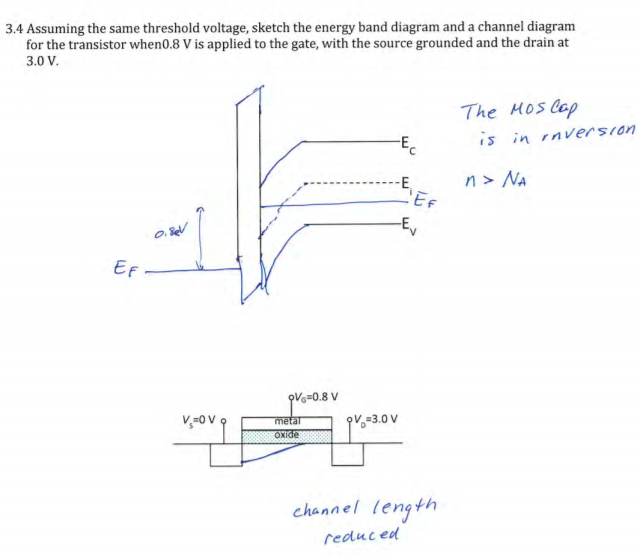 3.4 Assuming the same threshold voltage, sketch the energy band diagram and a channel diagram
for the transistor when0.8 V is applied to the gate, with the source grounded and the drain at
3.0 V.
The MOS Cap
is in inversion
E_c
n > N_A
E_i
E_F
0.8eV
E_v
E_F
V_G=0.8 V
V_S=0 V
V_D=3.0 V
metal
oxide
channel length
reduced